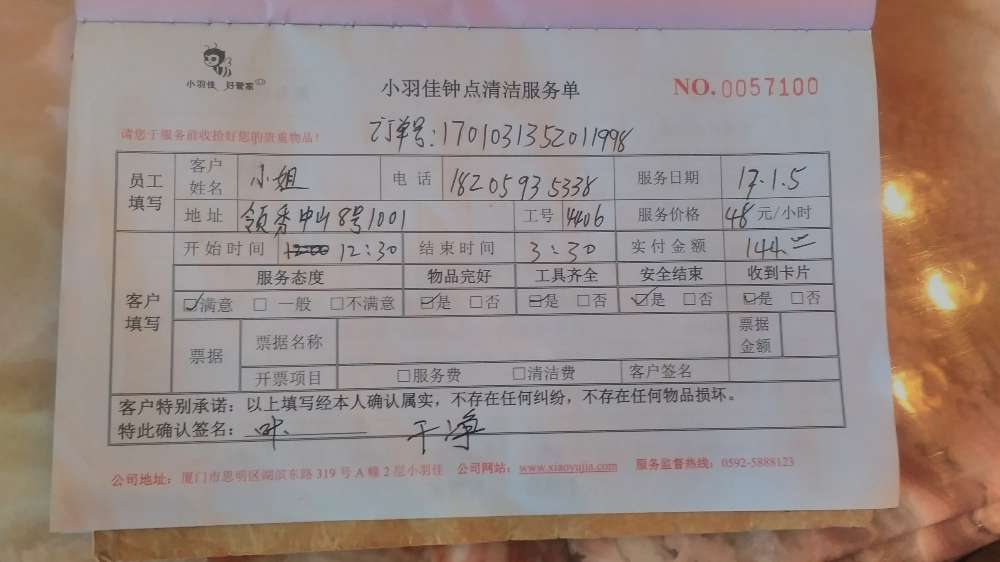 小羽佳 好管家
小羽佳钟点清洁服务单
NO. 0057100
请您于服务前收拾好您的贵重物品!
订单号:1701031352011998
员工填写 客户姓名 小姐 电话 18205935338 服务日期 17.1.5
地址 领秀中山8号1001 工号 4406 服务价格 48元/小时
客户填写 开始时间 12:30 结束时间 3:30 实付金额 144.
服务态度 物品完好 工具齐全 安全结束 收到卡片
☑满意 □一般 □不满意 ☑是 □否 ☑是 □否 ☑是 □否 ☑是 □否
票据 票据名称 票据金额
开票项目 □服务费 □清洁费 客户签名
客户特别承诺:以上填写经本人确认属实,不存在任何纠纷,不存在任何物品损坏。
特此确认签名:叶 干净
公司地址:厦门市思明区湖滨东路319号A幢2层小羽佳 公司网站:www.xiaoyujia.com 服务监督热线:0592-5888123